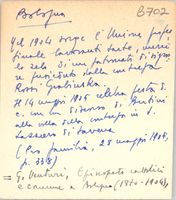 Bologna
B702
Nel 1904 sorge l'Unione profes
sionale lavoranti sarte, merci
lo zelo di un patronato di signo
re presieduto dalla contessa
Rossi Gralinska
Il 14 maggio 1905 celebra festa di
e. con un discorso di Bertini
alla villa della contessa in S.
Lazzaro di Savena
(Pro familia, 25 maggio 1905,
p. 338)
= G. Venturi, Episcopato cattolici
e comune a Bologna (1870-1904),